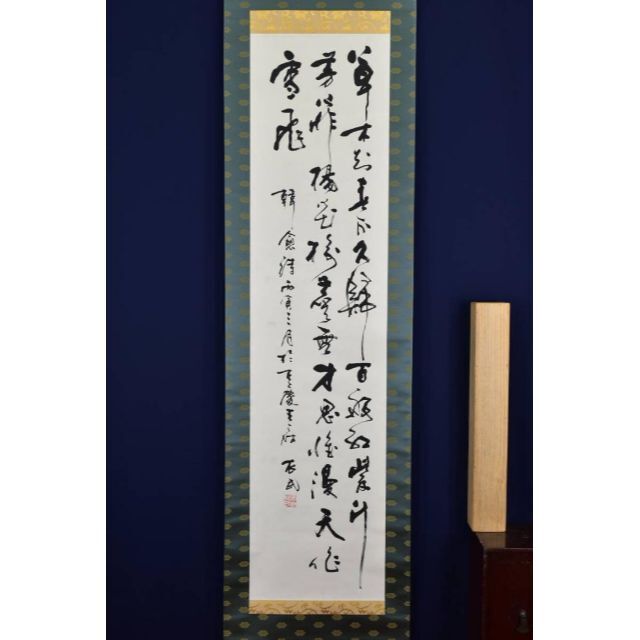 草木知春不久歸百般紅紫斗
芳菲楊花榆莢無才思惟漫天作
雪飛
韓愈詩丙寅三月於重慶